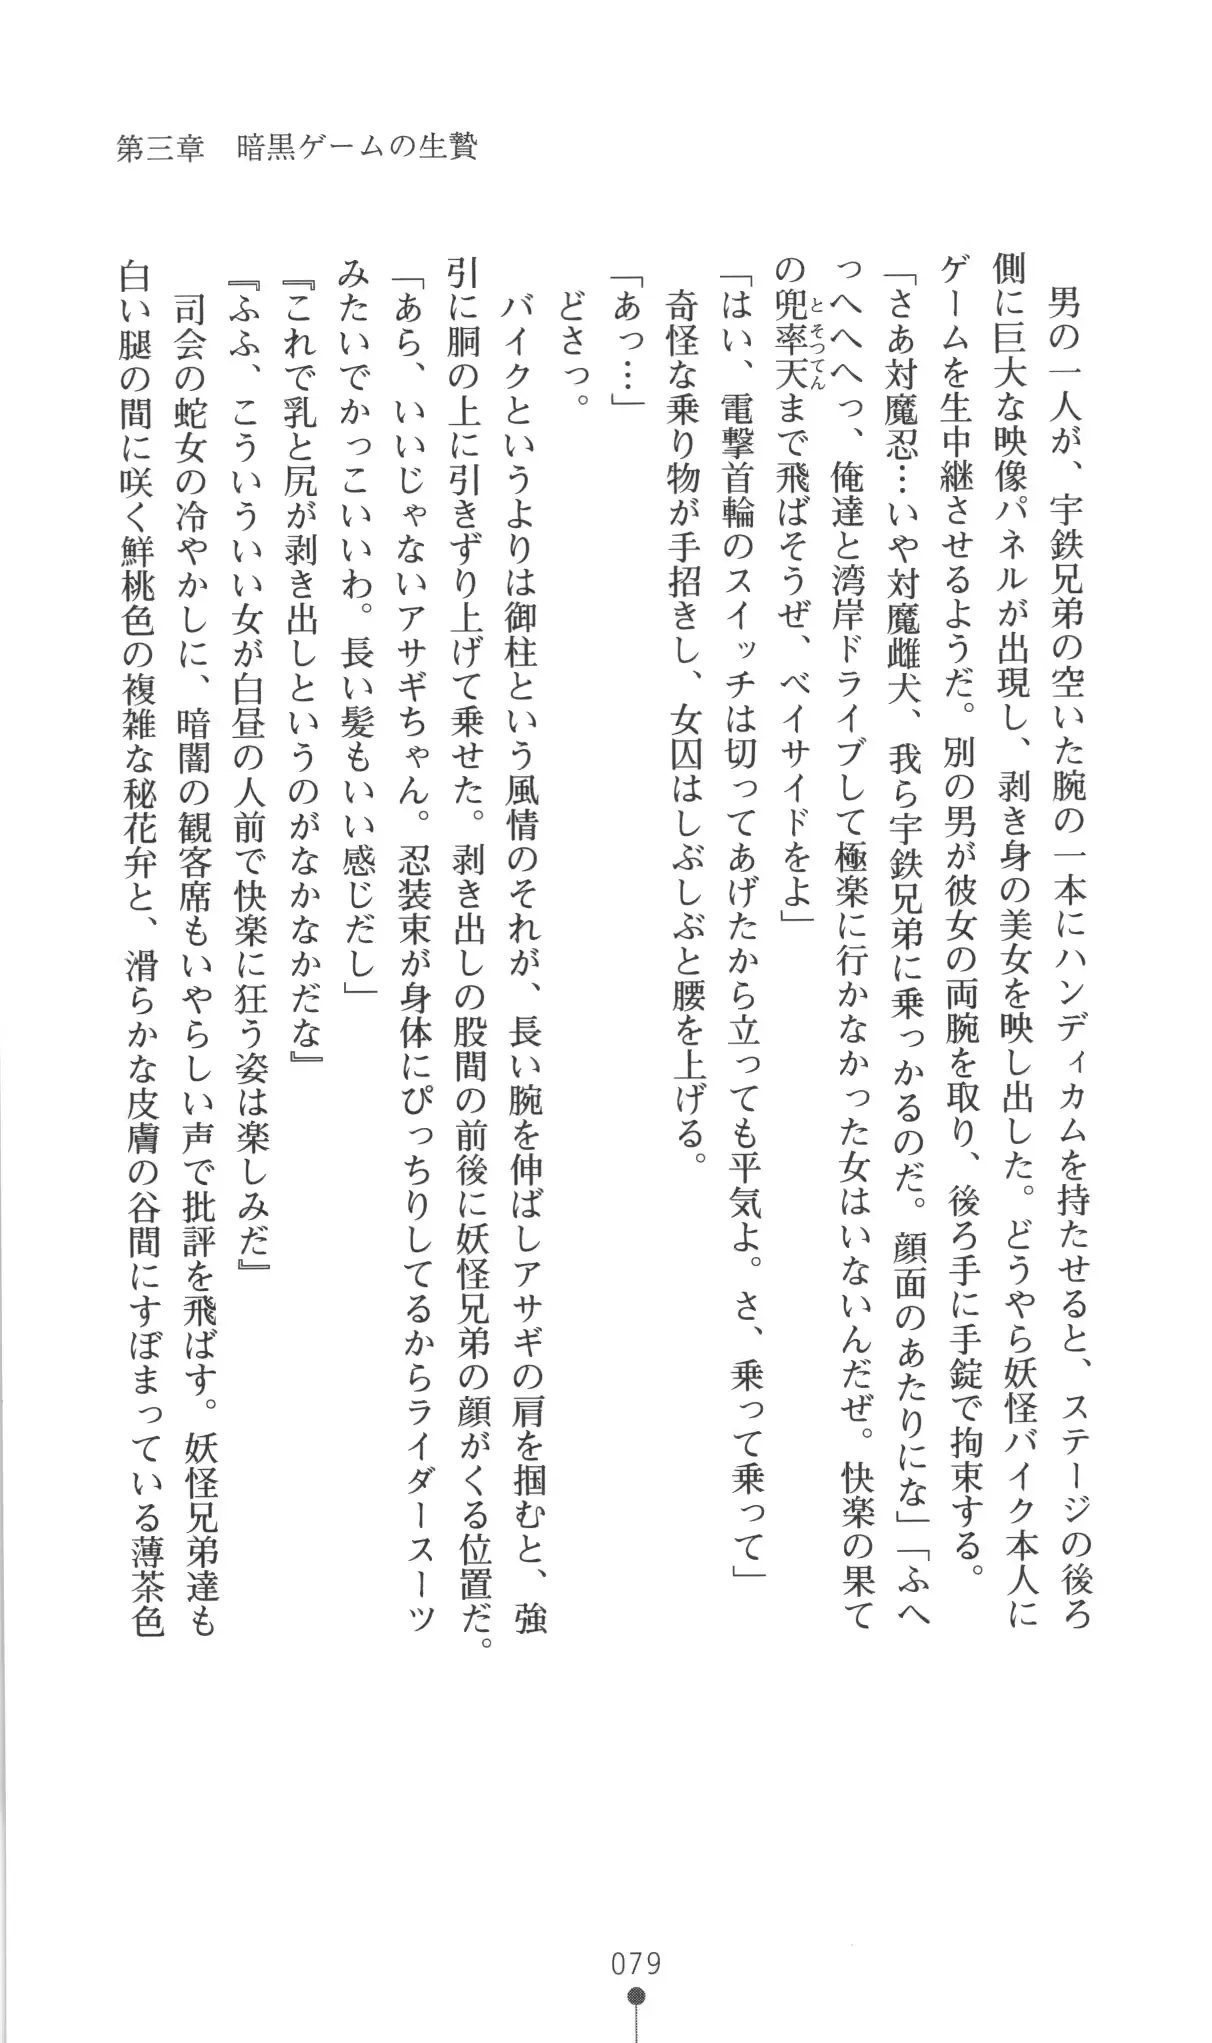 第三章　暗黒ゲームの生贄
　男の一人が、宇鉄兄弟の空いた腕の一本にハンディカムを持たせると、ステージの後ろ
側に巨大な映像パネルが出現し、剥き身の美女を映し出した。どうやら妖怪バイク本人に
ゲームを生中継させるようだ。別の男が彼女の両腕を取り、後ろ手に手錠で拘束する。
「さあ対魔忍…いや対魔雌犬、我ら宇鉄兄弟に乗っかるのだ。顔面のあたりにな」「ふへ
っへへへっ、俺達と湾岸ドライブして極楽に行かなかった女はいないんだぜ。快楽の果て
の兜率天まで飛ばそうぜ、ベイサイドをよ」
とそつてん
「はい、電撃首輪のスイッチは切ってあげたから立っても平気よ。さ、乗って乗って」
　奇怪な乗り物が手招きし、女囚はしぶしぶと腰を上げる。
「あっ…」
　どさっ。
　バイクというよりは御柱という風情のそれが、長い腕を伸ばしアサギの肩を掴むと、強
引に胴の上に引きずり上げて乗せた。剥き出しの股間の前後に妖怪兄弟の顔がくる位置だ。
「あら、いいじゃないアサギちゃん。忍装束が身体にぴっちりしてるからライダースーツ
みたいでかっこいいわ。長い髪もいい感じだし」
『これで乳と尻が剥き出しというのがなかなかだな』
『ふふ、こういういい女が白昼の人前で快楽に狂う姿は楽しみだ』
　司会の蛇女の冷やかしに、暗闇の観客席もいやらしい声で批評を飛ばす。妖怪兄弟達も
白い腿の間に咲く鮮桃色の複雑な秘花弁と、滑らかな皮膚の谷間にすぼまっている薄茶色
079